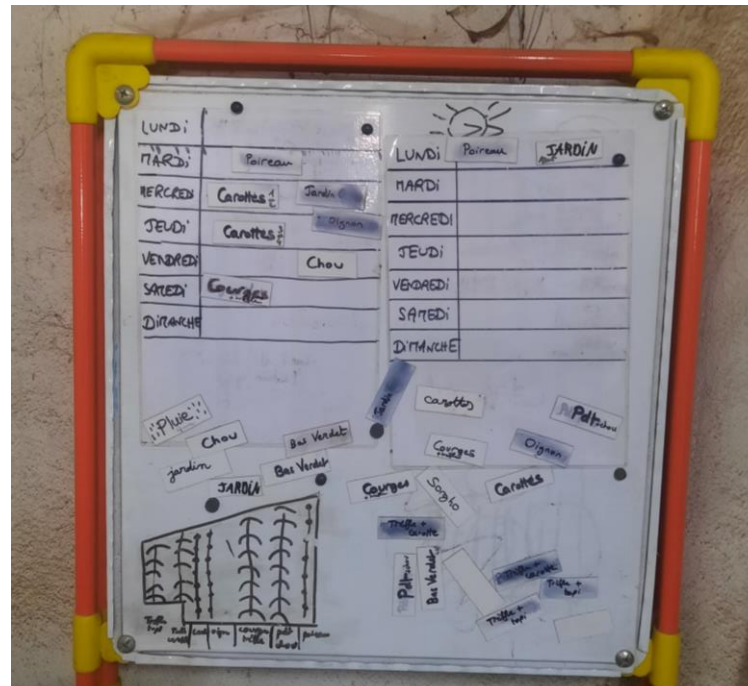 LUNDI
MARDI Poireau
MERCREDI Carottes 1/2 Jardin
JEUDI Carottes 3/4 Oignon
VENDREDI Chou
SAMEDI Courges
DIMANCHE
LUNDI Poireau JARDIN
MARDI
MERCREDI
JEUDI
VENDREDI
SAMEDI
DIMANCHE
Pluie
Chou
Bas Verdet
jardin
Bas Verdet
carottes
Pdt chou
Courges
Oignon
Courges
Sorgho
Carottes
Trèfle + carotte
Pdt chou
Bas Verdet
Trèfle + carotte
Trèfle + tapi
Trèfle + tapi
JARDIN